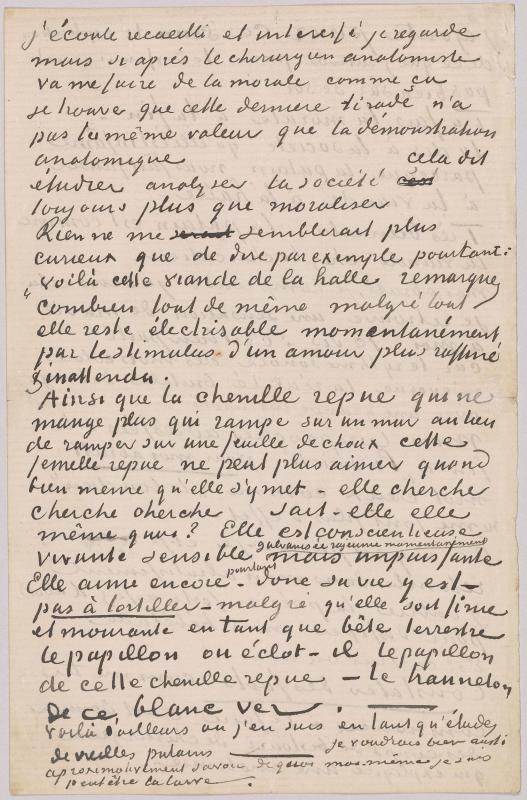 j'écoute recueilli et interessé je regarde
mais si après le chirurgien anatomiste
va me faire de la morale comme ça
je trouve que cette derniere tirade n'a
pas la même valeur que la démonstration
anatomique cela dit
étudier analyser la société c'est
toujours plus que moraliser
Rien ne me serait semblerait plus
curieux que de dire par exemple pourtant:
"voilà cette viande de la halle remarquez
combien tout de même malgré tout
elle reste électrisable momentanément
par le stimulus d'un amour plus raffiné
& inattendu.
Ainsi que la chenille repue qui ne
mange plus qui rampe sur un mur au lieu
de ramper sur une feuille de choux cette
femelle repue ne peut plus aimer quand
bien meme qu'elle s'y met - elle cherche
cherche cherche sait-elle elle
même quoi? Elle est conscientieuse
vivante sensible galvanisée rajeunie momentanément mais impuissante
Elle aime encore - pourtant donc sa vie y est -
pas à tortiller - malgré qu'elle soit finie
et mourante en tant que bête terrestre
le papillon où éclot - il le papillon
de cette chenille repue - le hanneton
de ce blanc ver.
Voilà d'ailleurs où j'en suis en tant qu'études
de vieilles putains je voudrais bien aussi
aproximativement savoir de quoi moi-même je suis
peut être la larve.